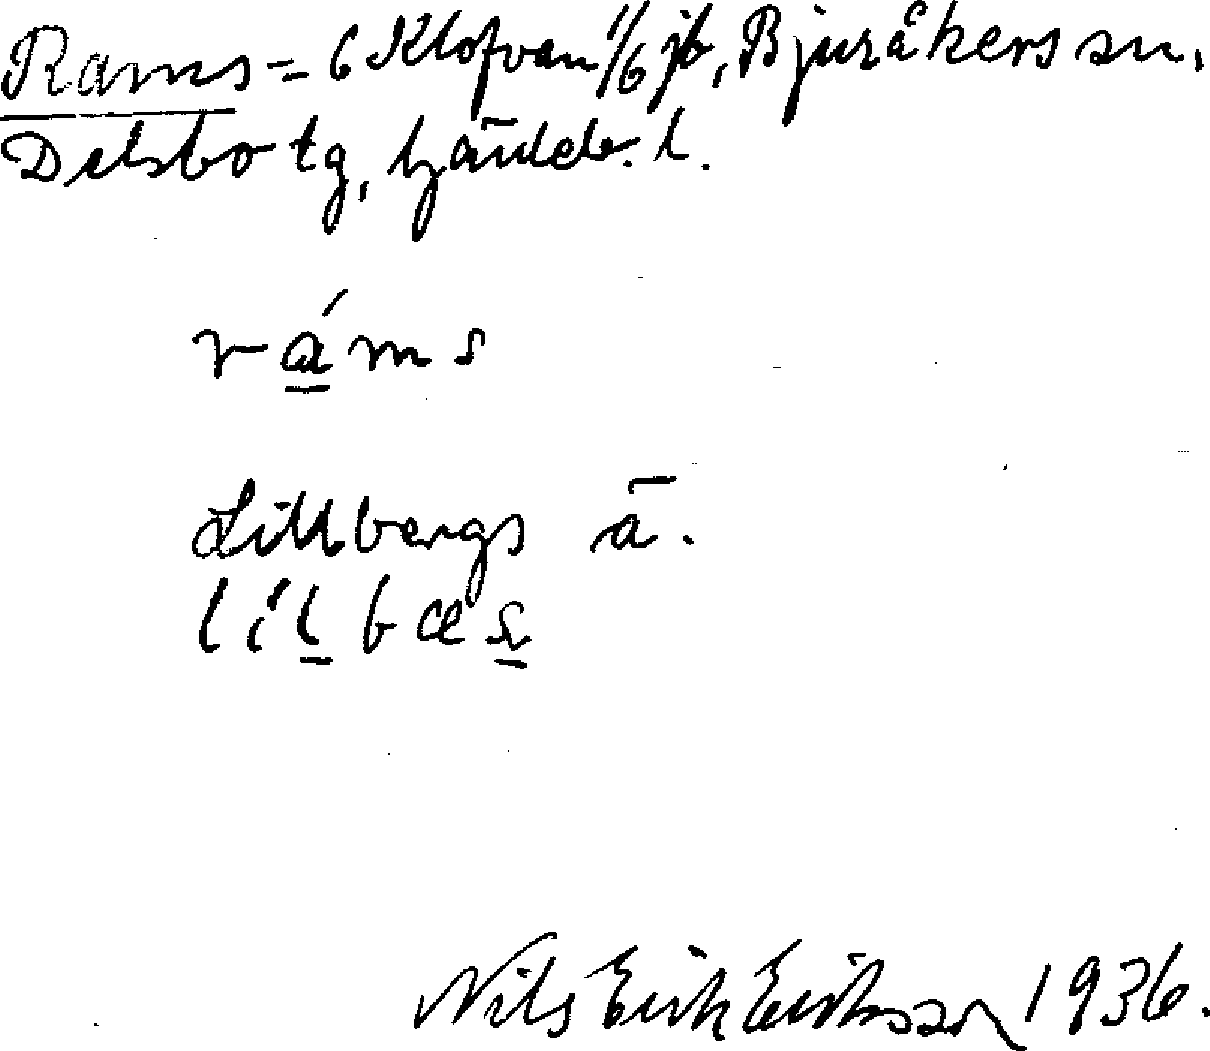 Rams = 6 Klofvan 1/6 jb, Bjuråkers sn,
Delsbo tg, Gävleb. l.
ráms
Lillbergs ä.
lílbæs
Nils Erik Eriksson 1936.